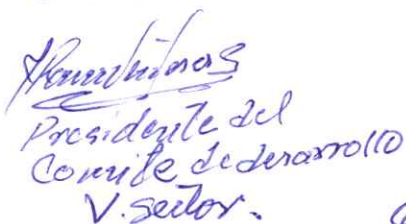 Presidente del
Comite de desarrollo
V. Sector.